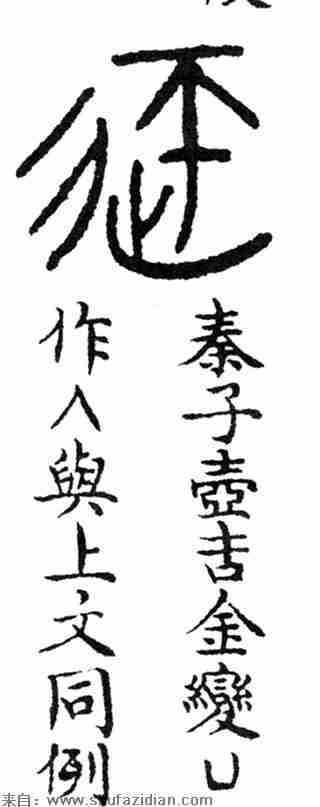 秦子壺吉金變凵
作入與上文同例
来自：www.shufazidian.com